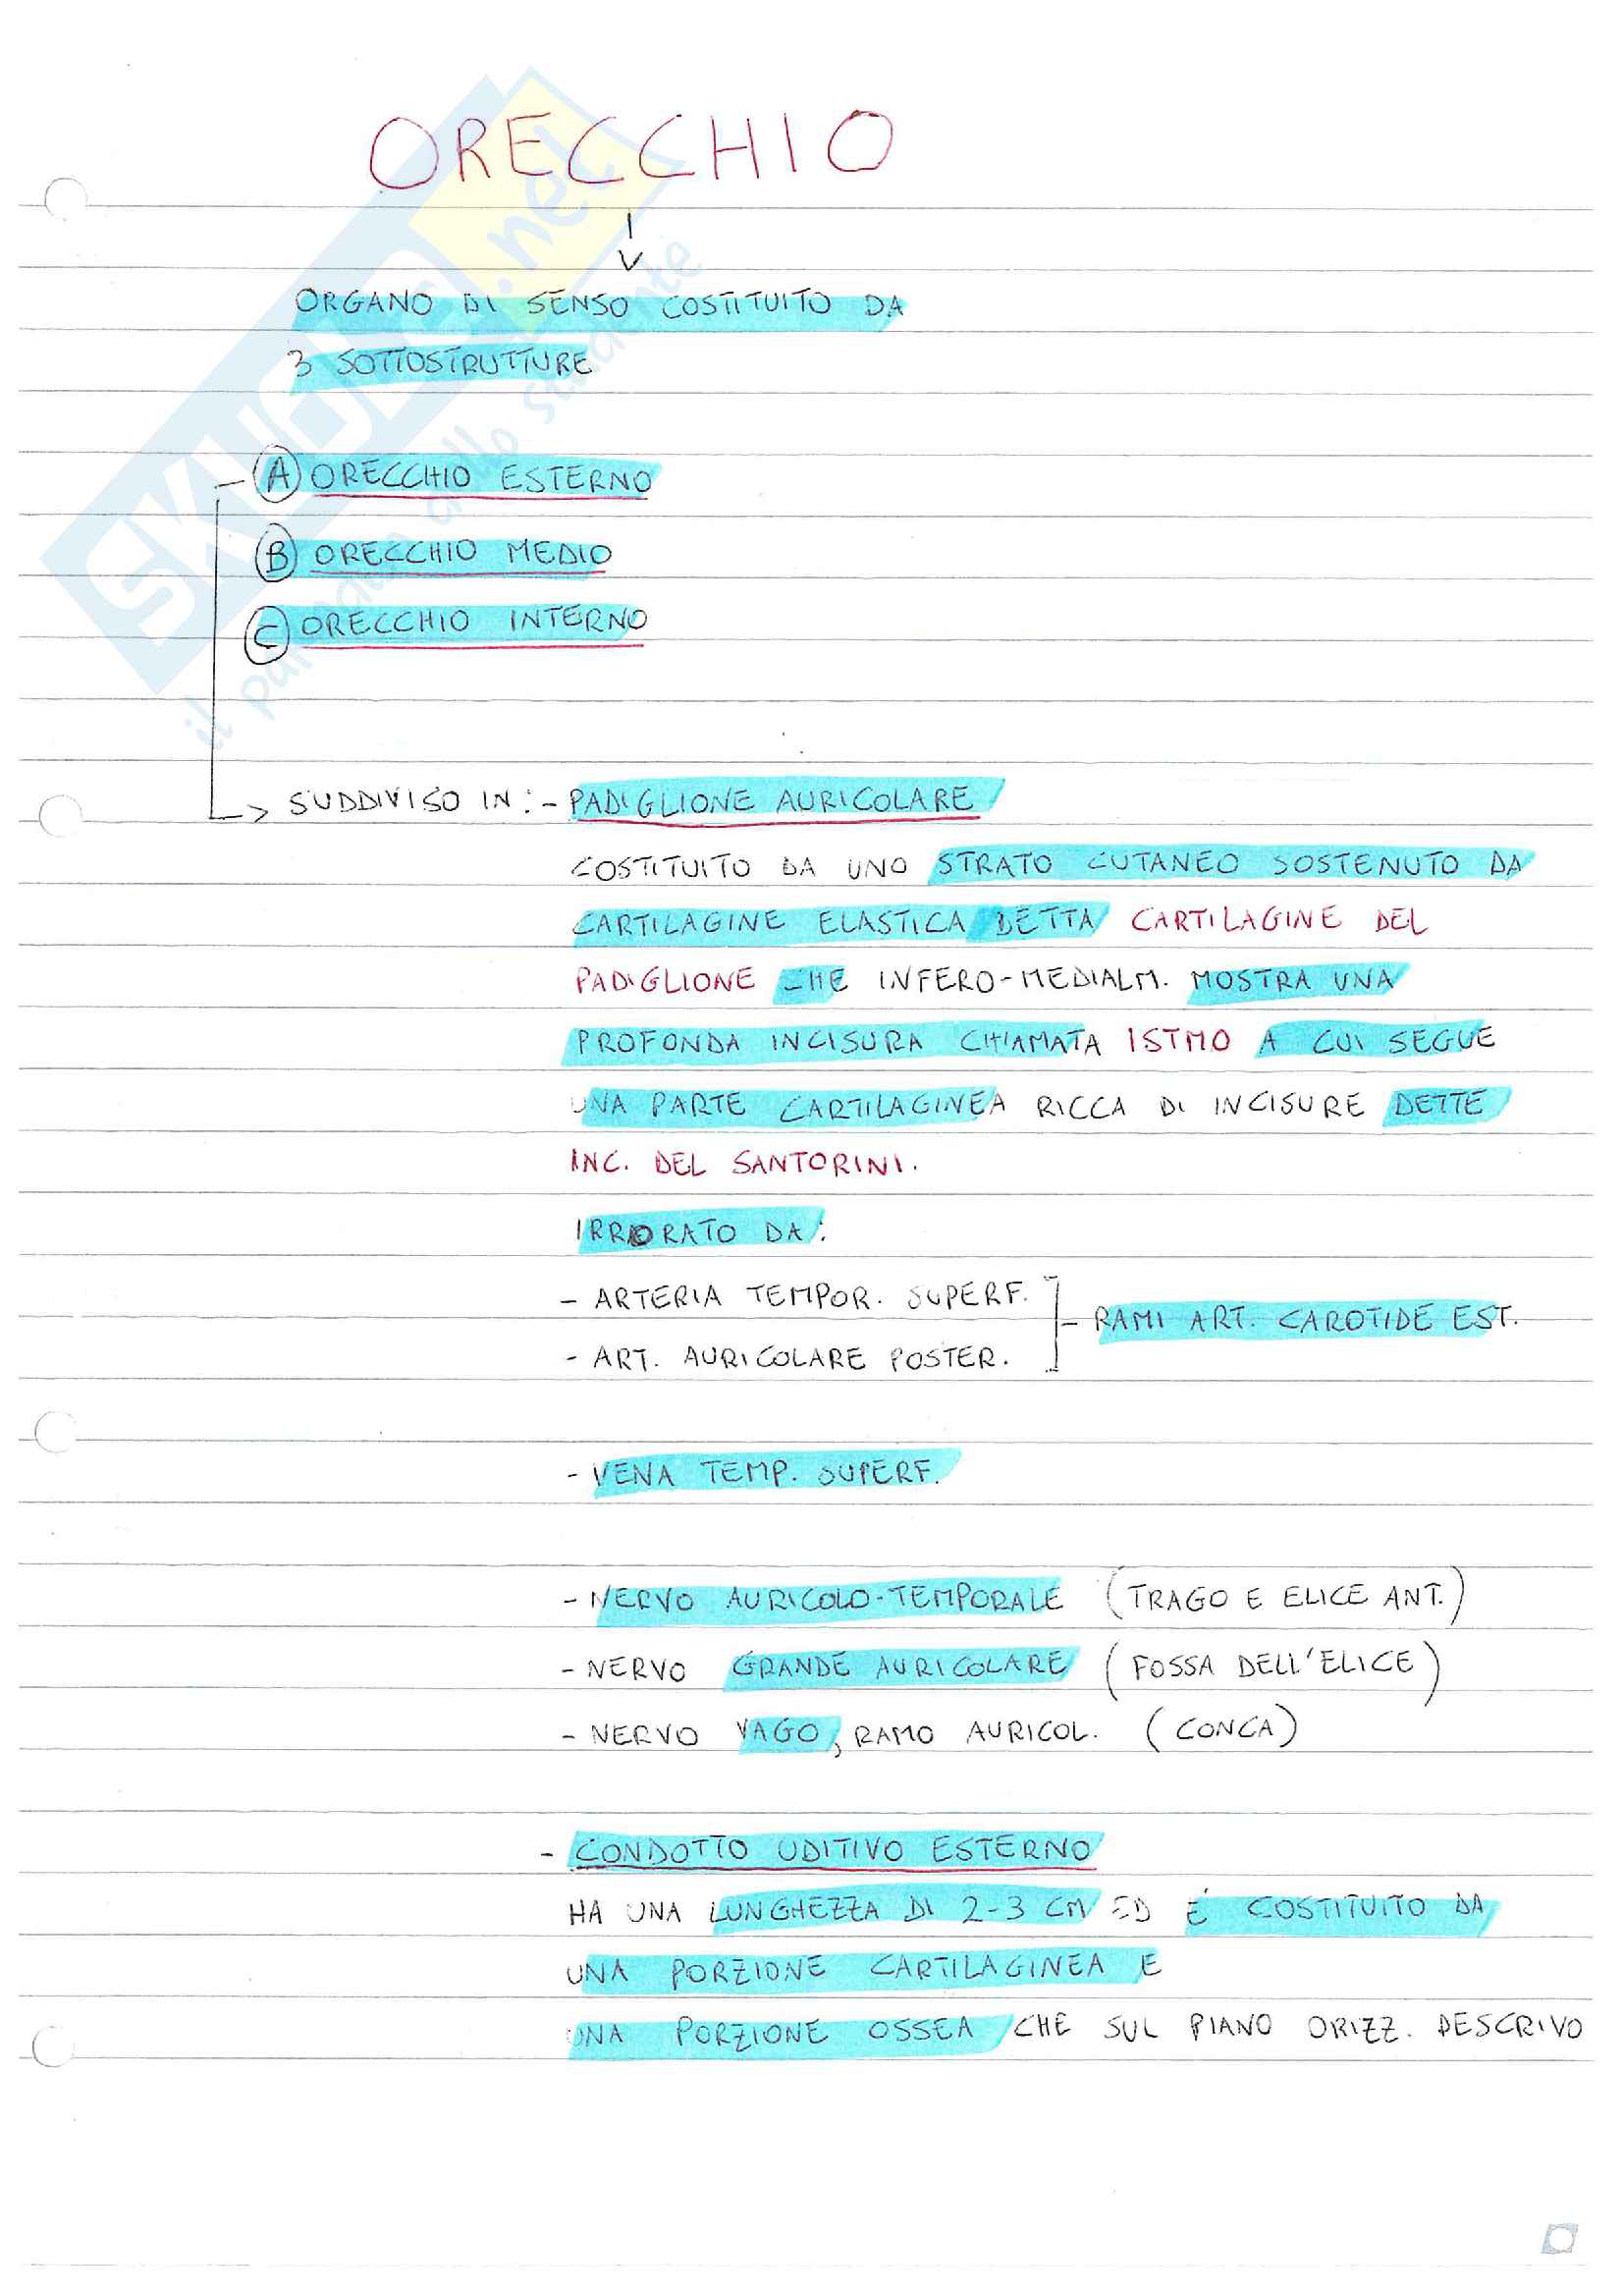 ORECCHIO
ORGANO DI SENSO COSTITUITO DA
3 SOTTOSTRUTTURE
A ORECCHIO ESTERNO
B ORECCHIO MEDIO
C ORECCHIO INTERNO
SUDDIVISO IN: - PADIGLIONE AURICOLARE
COSTITUITO DA UNO STRATO CUTANEO SOSTENUTO DA
CARTILAGINE ELASTICA DETTA CARTILAGINE DEL
PADIGLIONE CHE INFERO-MEDIALM. MOSTRA UNA
PROFONDA INCISURA CHIAMATA ISTMO A CUI SEGUE
UNA PARTE CARTILAGINEA RICCA DI INCISURE DETTE
INC. DEL SANTORINI.
IRRORATO DA:
- ARTERIA TEMPOR. SUPERF.
- ART. AURICOLARE POSTER.
- RAMI ART. CAROTIDE EST.
- VENA TEMP. SUPERF.
- NERVO AURICOLO-TEMPORALE (TRAGO E ELICE ANT.)
- NERVO GRANDE AURICOLARE (FOSSA DELL'ELICE)
- NERVO VAGO, RAMO AURICOL. (CONCA)
- CONDOTTO UDITIVO ESTERNO
HA UNA LUNGHEZZA DI 2-3 CM ED È COSTITUITO DA
UNA PORZIONE CARTILAGINEA E
UNA PORZIONE OSSEA CHE SUL PIANO ORIZZ. DESCRIVO
SKUOLA.net
il paradiso dello studente